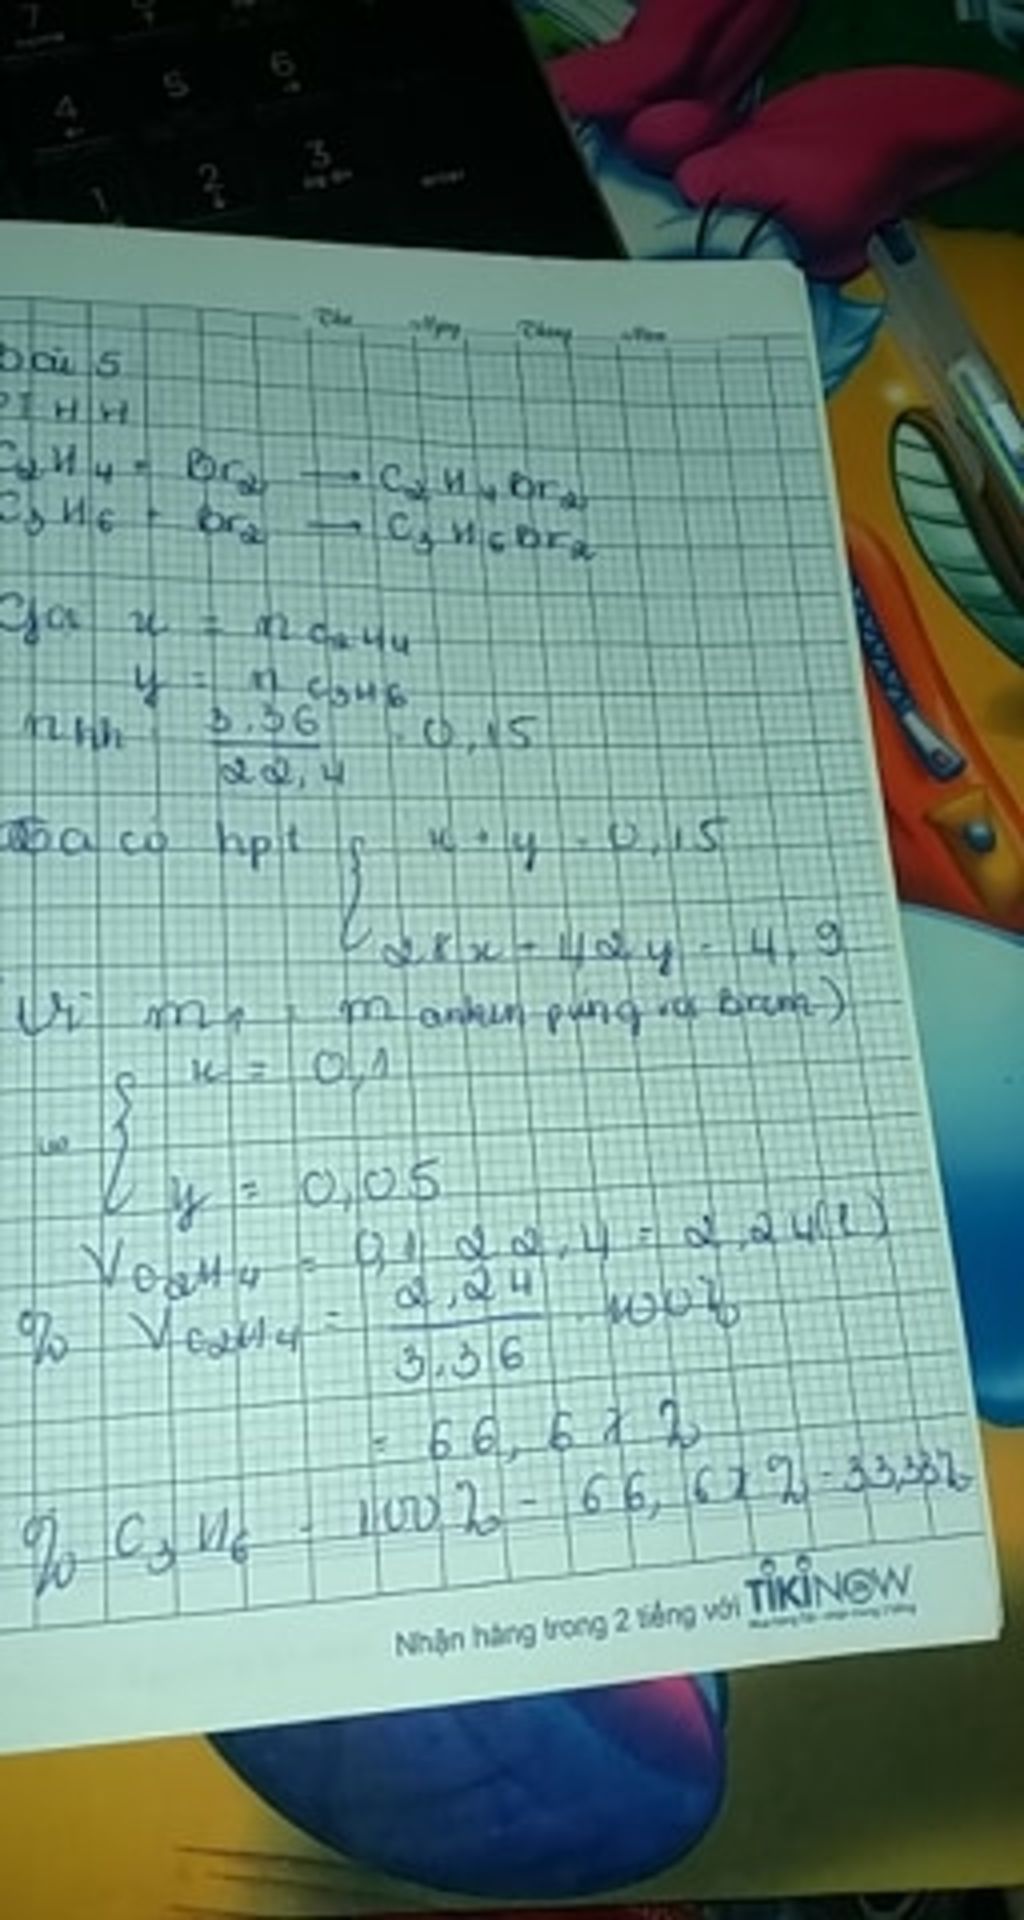 7
4
5
6
1
2
3
enter
Thứ Ngày Tháng Năm
Bài 5
PTHH
C2H4 + Br2 → C2H4Br2
C3H6 + Br2 → C3H6Br2
Gọi x = n C2H4
y = n C3H6
nhh = 3,36 / 22,4 = 0,15
Ta có hpt { x + y = 0,15
28x + 42y = 4,9
m anken pứng
{ x = 0,1
y = 0,05
V C2H4 = 0,1. 22,4 = 2,24(l)
% V C2H4 = 2,24 / 3,36 . 100%
= 66,67%
% C3H6 = 100% - 66,67% = 33,33%
Nhận hàng trong 2 tiếng với TIKINOW